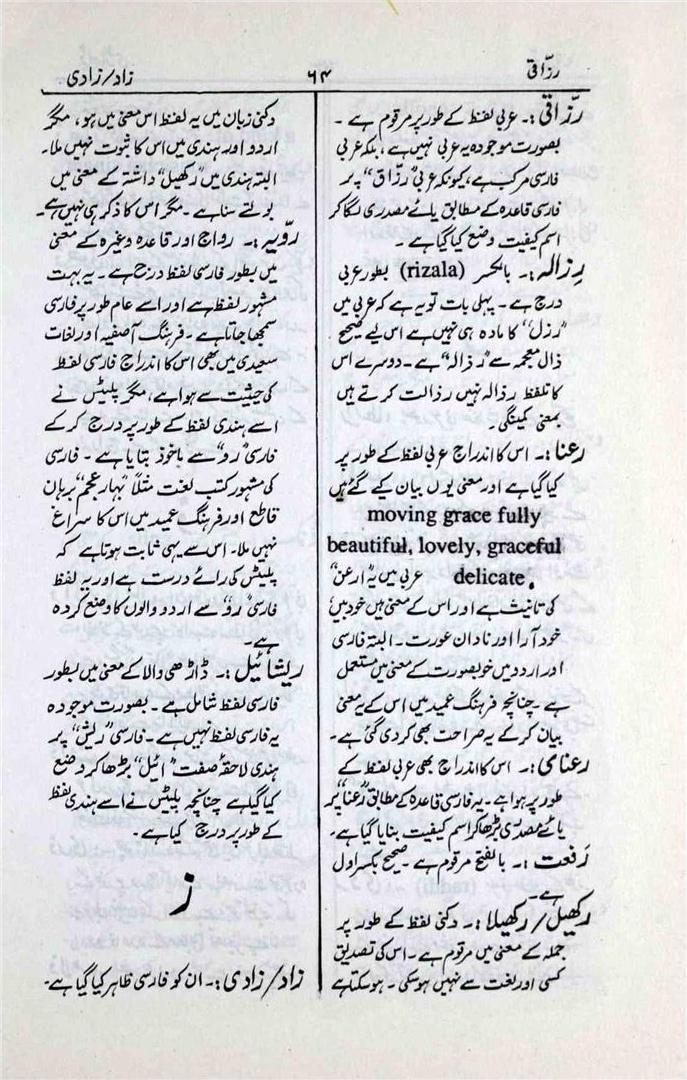 رزّاقی
۶۴
زاد/زادی
رزّاقی:۔ عربی لفظ کے طور پر مرقوم ہے۔
بصورت موجودہ یہ عربی نہیں ہے، بلکہ عربی
فارسی مرکب ہے، کیونکہ عربی "رزّاق" پر
فارسی قاعدہ کے مطابق یائے مصدری لگا کر
اسم کیفیت وضع کیا گیا ہے۔
رِزالہ:۔ بالکسر (rizala) بطور عربی
درج ہے۔ پہلی بات تو یہ ہے کہ عربی میں
"رزل" کا مادہ ہی نہیں ہے اس لیے صحیح
ذال معجمہ سے "رذالہ" ہے۔ دوسرے اس
کا تلفظ رذالہ نہیں رذالت کرتے ہیں
بمعنی کمینگی۔
رعنا:۔ اس کا اندراج عربی لفظ کے طور پر
کیا گیا ہے اور معنی یوں بیان کیے گئے ہیں
moving grace fully
beautiful, lovely, graceful
delicate, عربی میں یہ "ارعن"
کی تانیث ہے اور اس کے معنی ہیں خود بیں،
خود آرا اور نادان عورت۔ البتہ فارسی
اور اردو میں خوبصورت کے معنی میں مستعمل
ہے۔ چنانچہ فرہنگ عمید میں اس کے یہ معنی
بیان کر کے یہ صراحت بھی کر دی گئی ہے۔
رعنامی:۔ اس کا اندراج بھی عربی لفظ کے
طور پر ہوا ہے۔ یہ فارسی قاعدہ کے مطابق "رعنا" پر
یائے مصدری بڑھا کر اسم کیفیت بنایا گیا ہے۔
رَفعت:۔ بالفتح مرقوم ہے۔ صحیح بکسر اول
ہے۔
رکھیل/رکھیلا:۔ دکنی لفظ کے طور پر
جملہ کے معنی میں مرقوم ہے۔ اس کی تصدیق
کسی اور لغت سے نہیں ہو سکی۔ ہو سکتا ہے
دکنی زبان میں یہ لفظ اس معنی میں ہو، مگر
اردو اور ہندی میں اس کا ثبوت نہیں ملا۔
البتہ ہندی میں "رکھیل" داشتہ کے معنی میں
بولتے سنا ہے۔ مگر اس کا ذکر ہی نہیں ہے۔
روّیہ:۔ رواج اور قاعدہ وغیرہ کے معنی
میں بطور فارسی لفظ درج ہے۔ یہ بہت
مشہور لفظ ہے اور اسے عام طور پر فارسی
سمجھا جاتا ہے۔ فرہنگ آصفیہ اور لغات
سعیدی میں بھی اس کا اندراج فارسی لفظ
کی حیثیت سے ہوا ہے، مگر پلیٹس نے
اسے ہندی لفظ کے طور پر درج کر کے
فارسی "رو" سے ماخوذ بتایا ہے۔ فارسی
کی مشہور کتب لغت مثلاً "بہار عجم" برہان
قاطع اور فرہنگ عمید میں اس کا سراغ
نہیں ملا۔ اس سے یہی ثابت ہوتا ہے کہ
پلیٹس کی رائے درست ہے اور یہ لفظ
فارسی "رو" سے اردو والوں کا وضع کردہ
ہے۔
ریشائیل:۔ ڈاڑھی والا کے معنی میں بطور
فارسی لفظ شامل ہے۔ بصورت موجودہ
یہ فارسی لفظ نہیں ہے۔ فارسی "ریش" پر
ہندی لاحقۂ صفت "ائیل" بڑھا کر وضع
کیا گیا ہے چنانچہ پلیٹس نے اسے ہندی لفظ
کے طور پر درج کیا ہے۔
ز
زاد/زادی:۔ ان کو فارسی ظاہر کیا گیا ہے۔